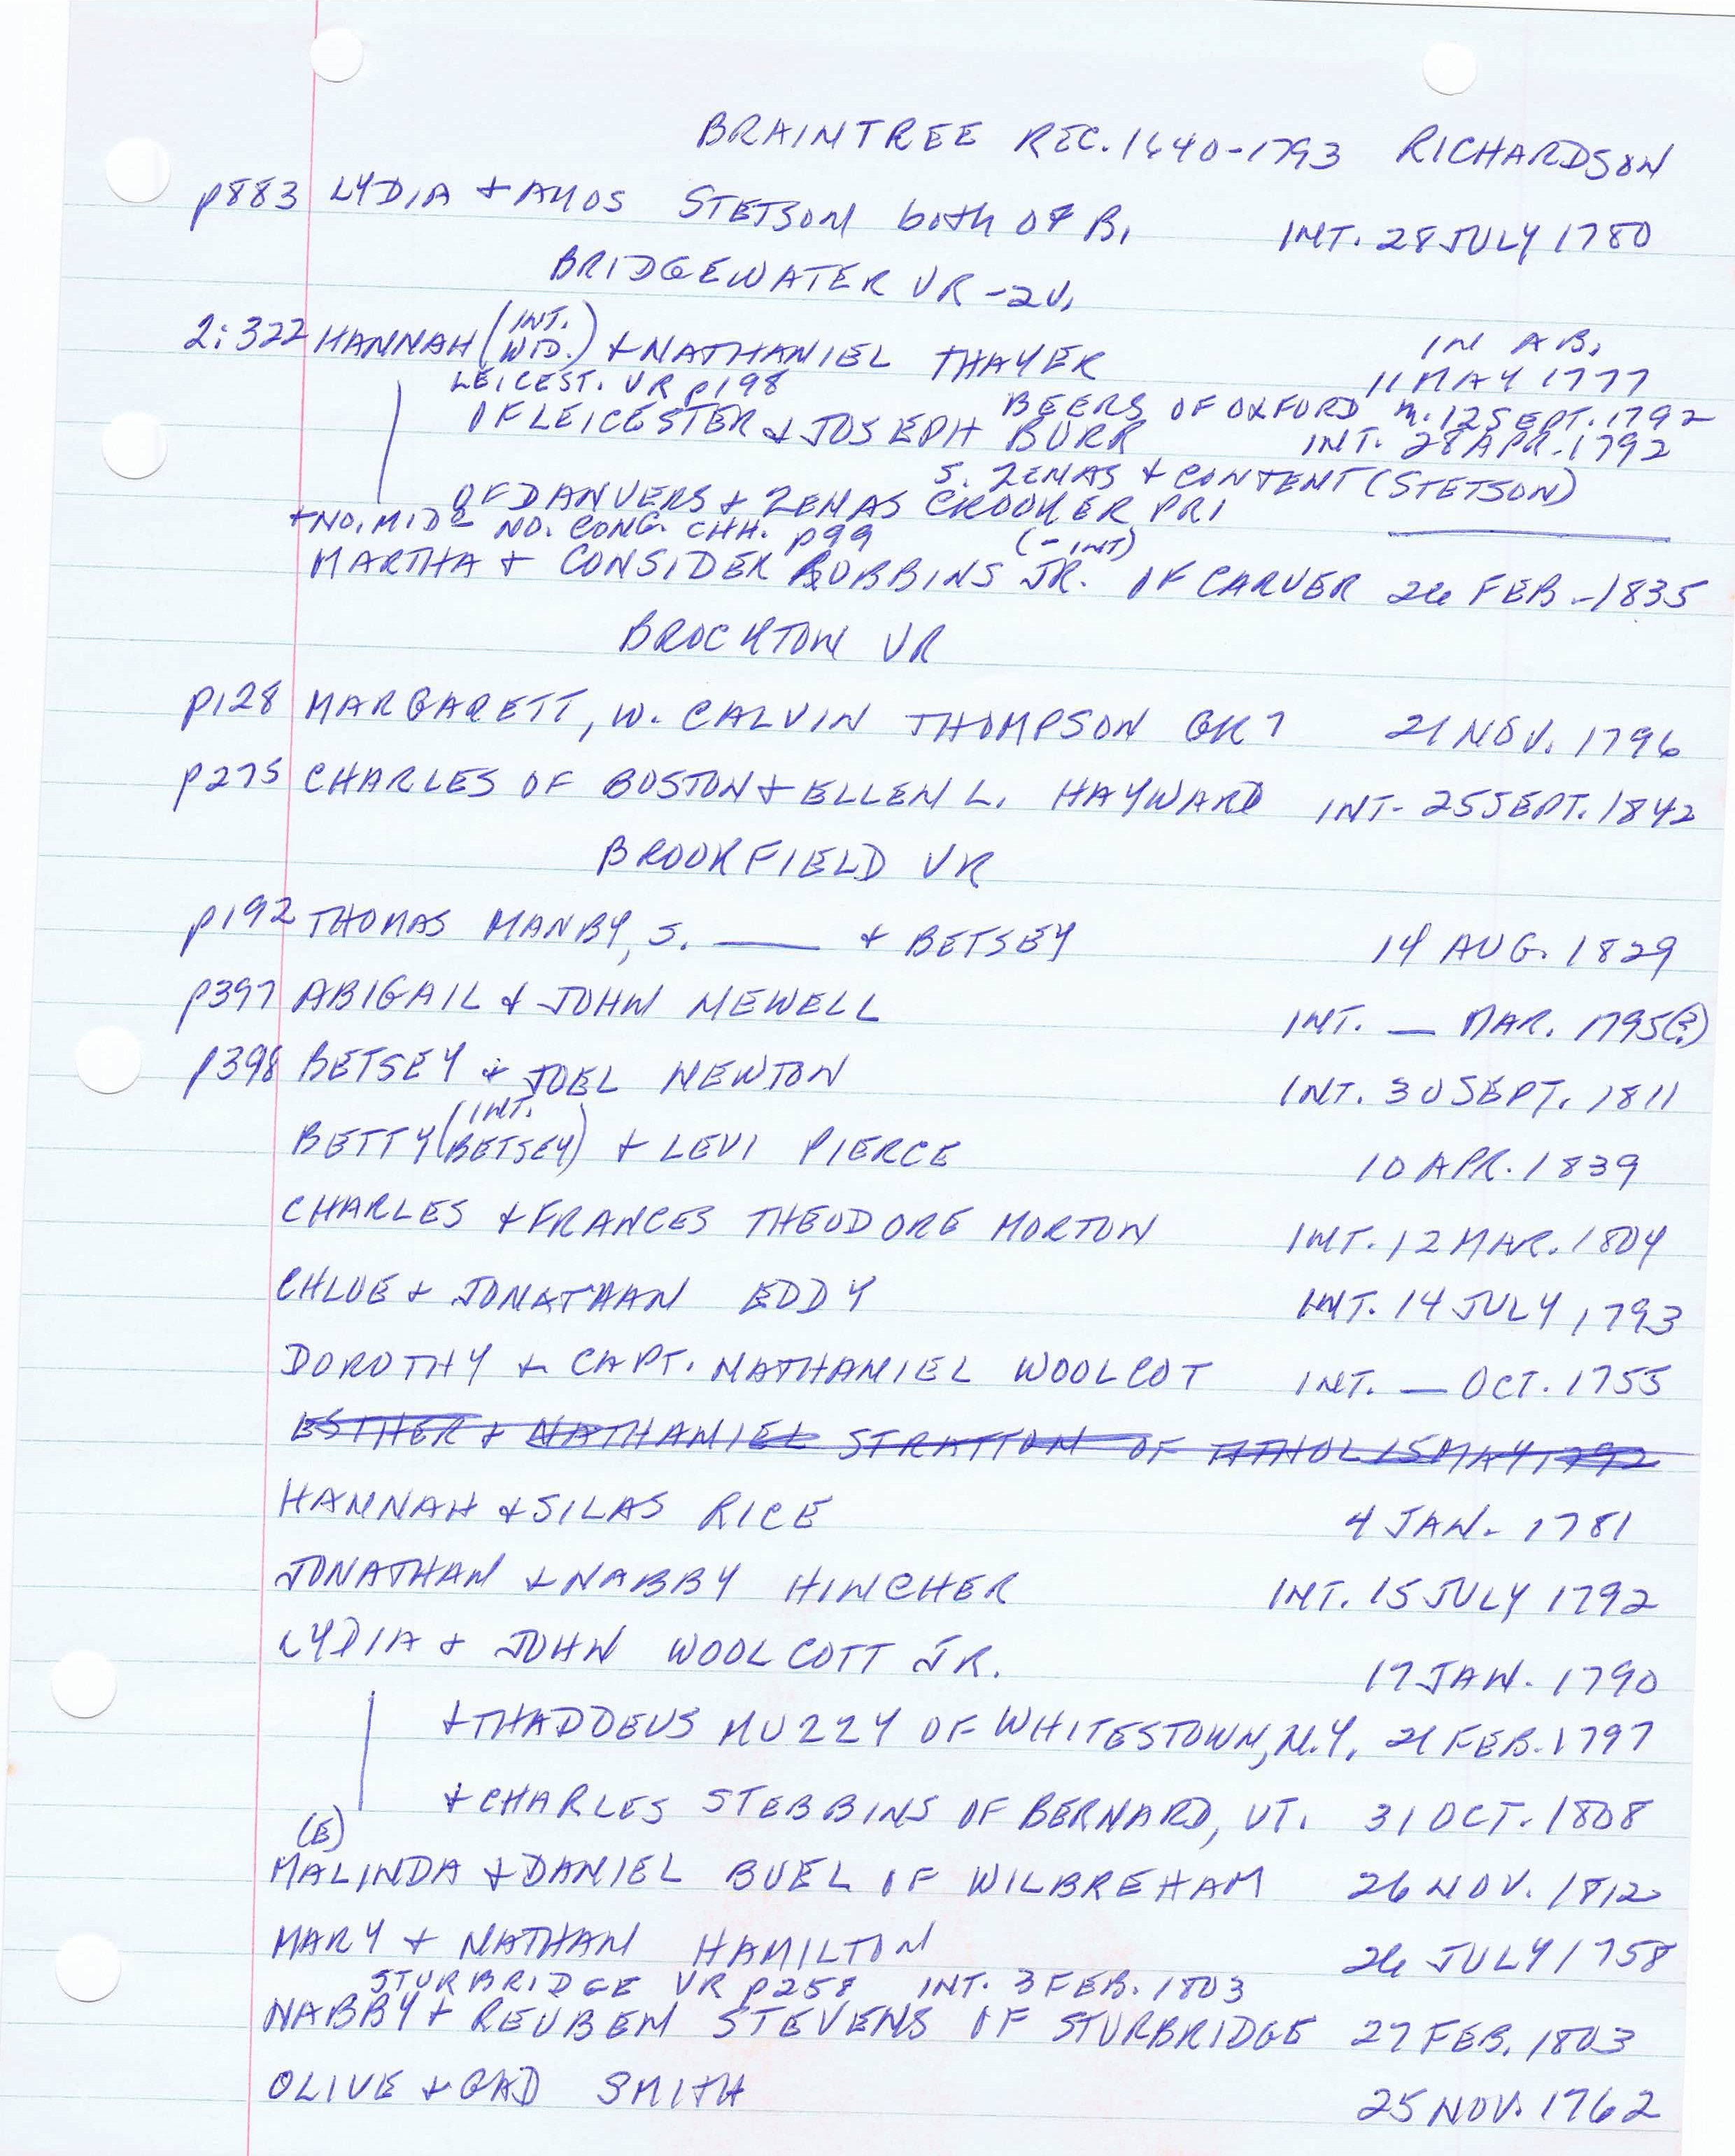 BRAINTREE REC. 1640-1793 RICHARDSON
p883 LYDIA + AMOS STETSON both OF B. INT. 28 JULY 1780
BRIDGEWATER VR - 2V.
2:322 HANNAH (INT. WID.) + NATHANIEL THAYER IN A B. 11 MAY 1777
LEICEST. VR p198
BEERS OF OXFORD m. 12 SEPT. 1792
OF LEICESTER + JOSEPH BURR INT. 28 APR. 1792
S. ZENAS + CONTENT (STETSON)
OF DANVERS + ZENAS CROOKER PR1
+ NO. MID & NO. CONG. CHH. p99 (-INT)
MARTHA + CONSIDER ROBBINS JR. OF CARVER 26 FEB - 1835
BROCKTON VR
p128 MARGARETT, W. CALVIN THOMPSON GR7 21 NOV. 1796
p275 CHARLES OF BOSTON + ELLEN L. HAYWARD INT - 25 SEPT. 1842
BROOKFIELD VR
p192 THOMAS MANBY, S. ___ + BETSEY 14 AUG. 1829
p397 ABIGAIL + JOHN NEWELL INT. — MAR. 1795(?)
p398 BETSEY + JOEL NEWTON INT. 30 SEPT. 1811
BETTY (INT. BETSEY) + LEVI PIERCE 10 APR. 1839
CHARLES + FRANCES THEODORE MORTON INT. 12 MAR. 1804
CHLOE + JONATHAN EDDY INT. 14 JULY 1793
DOROTHY + CAPT. NATHANIEL WOOLCOT INT. — OCT. 1755
ESTHER + NATHANIEL STRATTON OF ATHOL 15 MAY 1792
HANNAH + SILAS RICE 4 JAN. 1781
JONATHAN + NABBY HINCHER INT. 15 JULY 1792
LYDIA + JOHN WOOLCOTT JR. 17 JAN. 1790
+ THADDEUS MUZZY OF WHITESTOWN, N.Y. 21 FEB. 1797
+ CHARLES STEBBINS OF BERNARD, VT. 31 OCT. 1808
(E)
MALINDA + DANIEL BUEL OF WILBREHAM 26 NOV. 1812
MARY + NATHAN HAMILTON 26 JULY 1758
STURBRIDGE VR p258 INT. 3 FEB. 1803
NABBY + REUBEN STEVENS OF STURBRIDGE 27 FEB. 1803
OLIVE + GAD SMITH 25 NOV. 1762